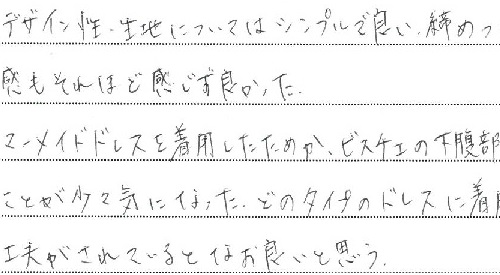 デザイン性、生地についてはシンプルで良い、締めつ
感もそれほど感じず良かった。
マーメイドドレスを着用したためか、ビスチェの下腹部
ことが少々気になった。どのタイプのドレスに着用
工夫がされているとなお良いと思う。